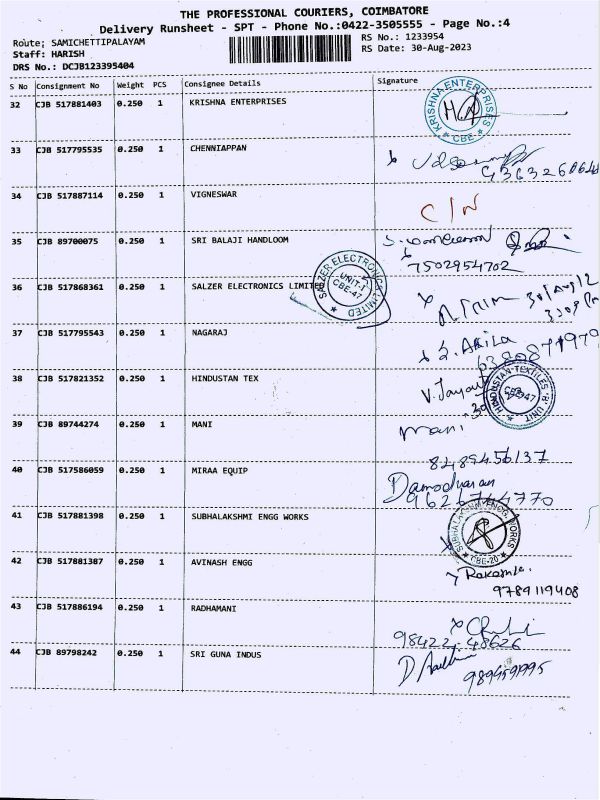 THE PROFESSIONAL COURIERS, COIMBATORE
Delivery Runsheet - SPT - Phone No.:0422-3505555 - Page No.:4
Route; SAMICHETTIPALAYAM
Staff: HARISH
DRS No.: DCJB123395404
RS No.: 1233954
RS Date: 30-Aug-2023
S No Consignment No Weight PCS Consignee Details Signature
32 CJB 517881403 0.250 1 KRISHNA ENTERPRISES
KRISHNA ENTERPRISES CBE
33 CJB 517795535 0.250 1 CHENNIAPPAN
34 CJB 517887114 0.250 1 VIGNESWAR
C/N
35 CJB 89700075 0.250 1 SRI BALAJI HANDLOOM
7502954702
36 CJB 517868361 0.250 1 SALZER ELECTRONICS LIMITED
SALZER ELECTRONICS LIMITED UNIT-I CBE-47
37 CJB 517795543 0.250 1 NAGARAJ
S. Akila
38 CJB 517821352 0.250 1 HINDUSTAN TEX
HINDUSTAN TEXTILES 'B' UNIT
39 CJB 89744274 0.250 1 MANI
mani
8489456137
40 CJB 517586059 0.250 1 MIRAA EQUIP
Damodharan
9626744770
41 CJB 517881398 0.250 1 SUBHALAKSHMI ENGG WORKS
SUBHALAKSHMI ENGG. WORKS CBE-20
42 CJB 517881387 0.250 1 AVINASH ENGG
9789119408
43 CJB 517886194 0.250 1 RADHAMANI
98422-48626
44 CJB 89798242 0.250 1 SRI GUNA INDUS